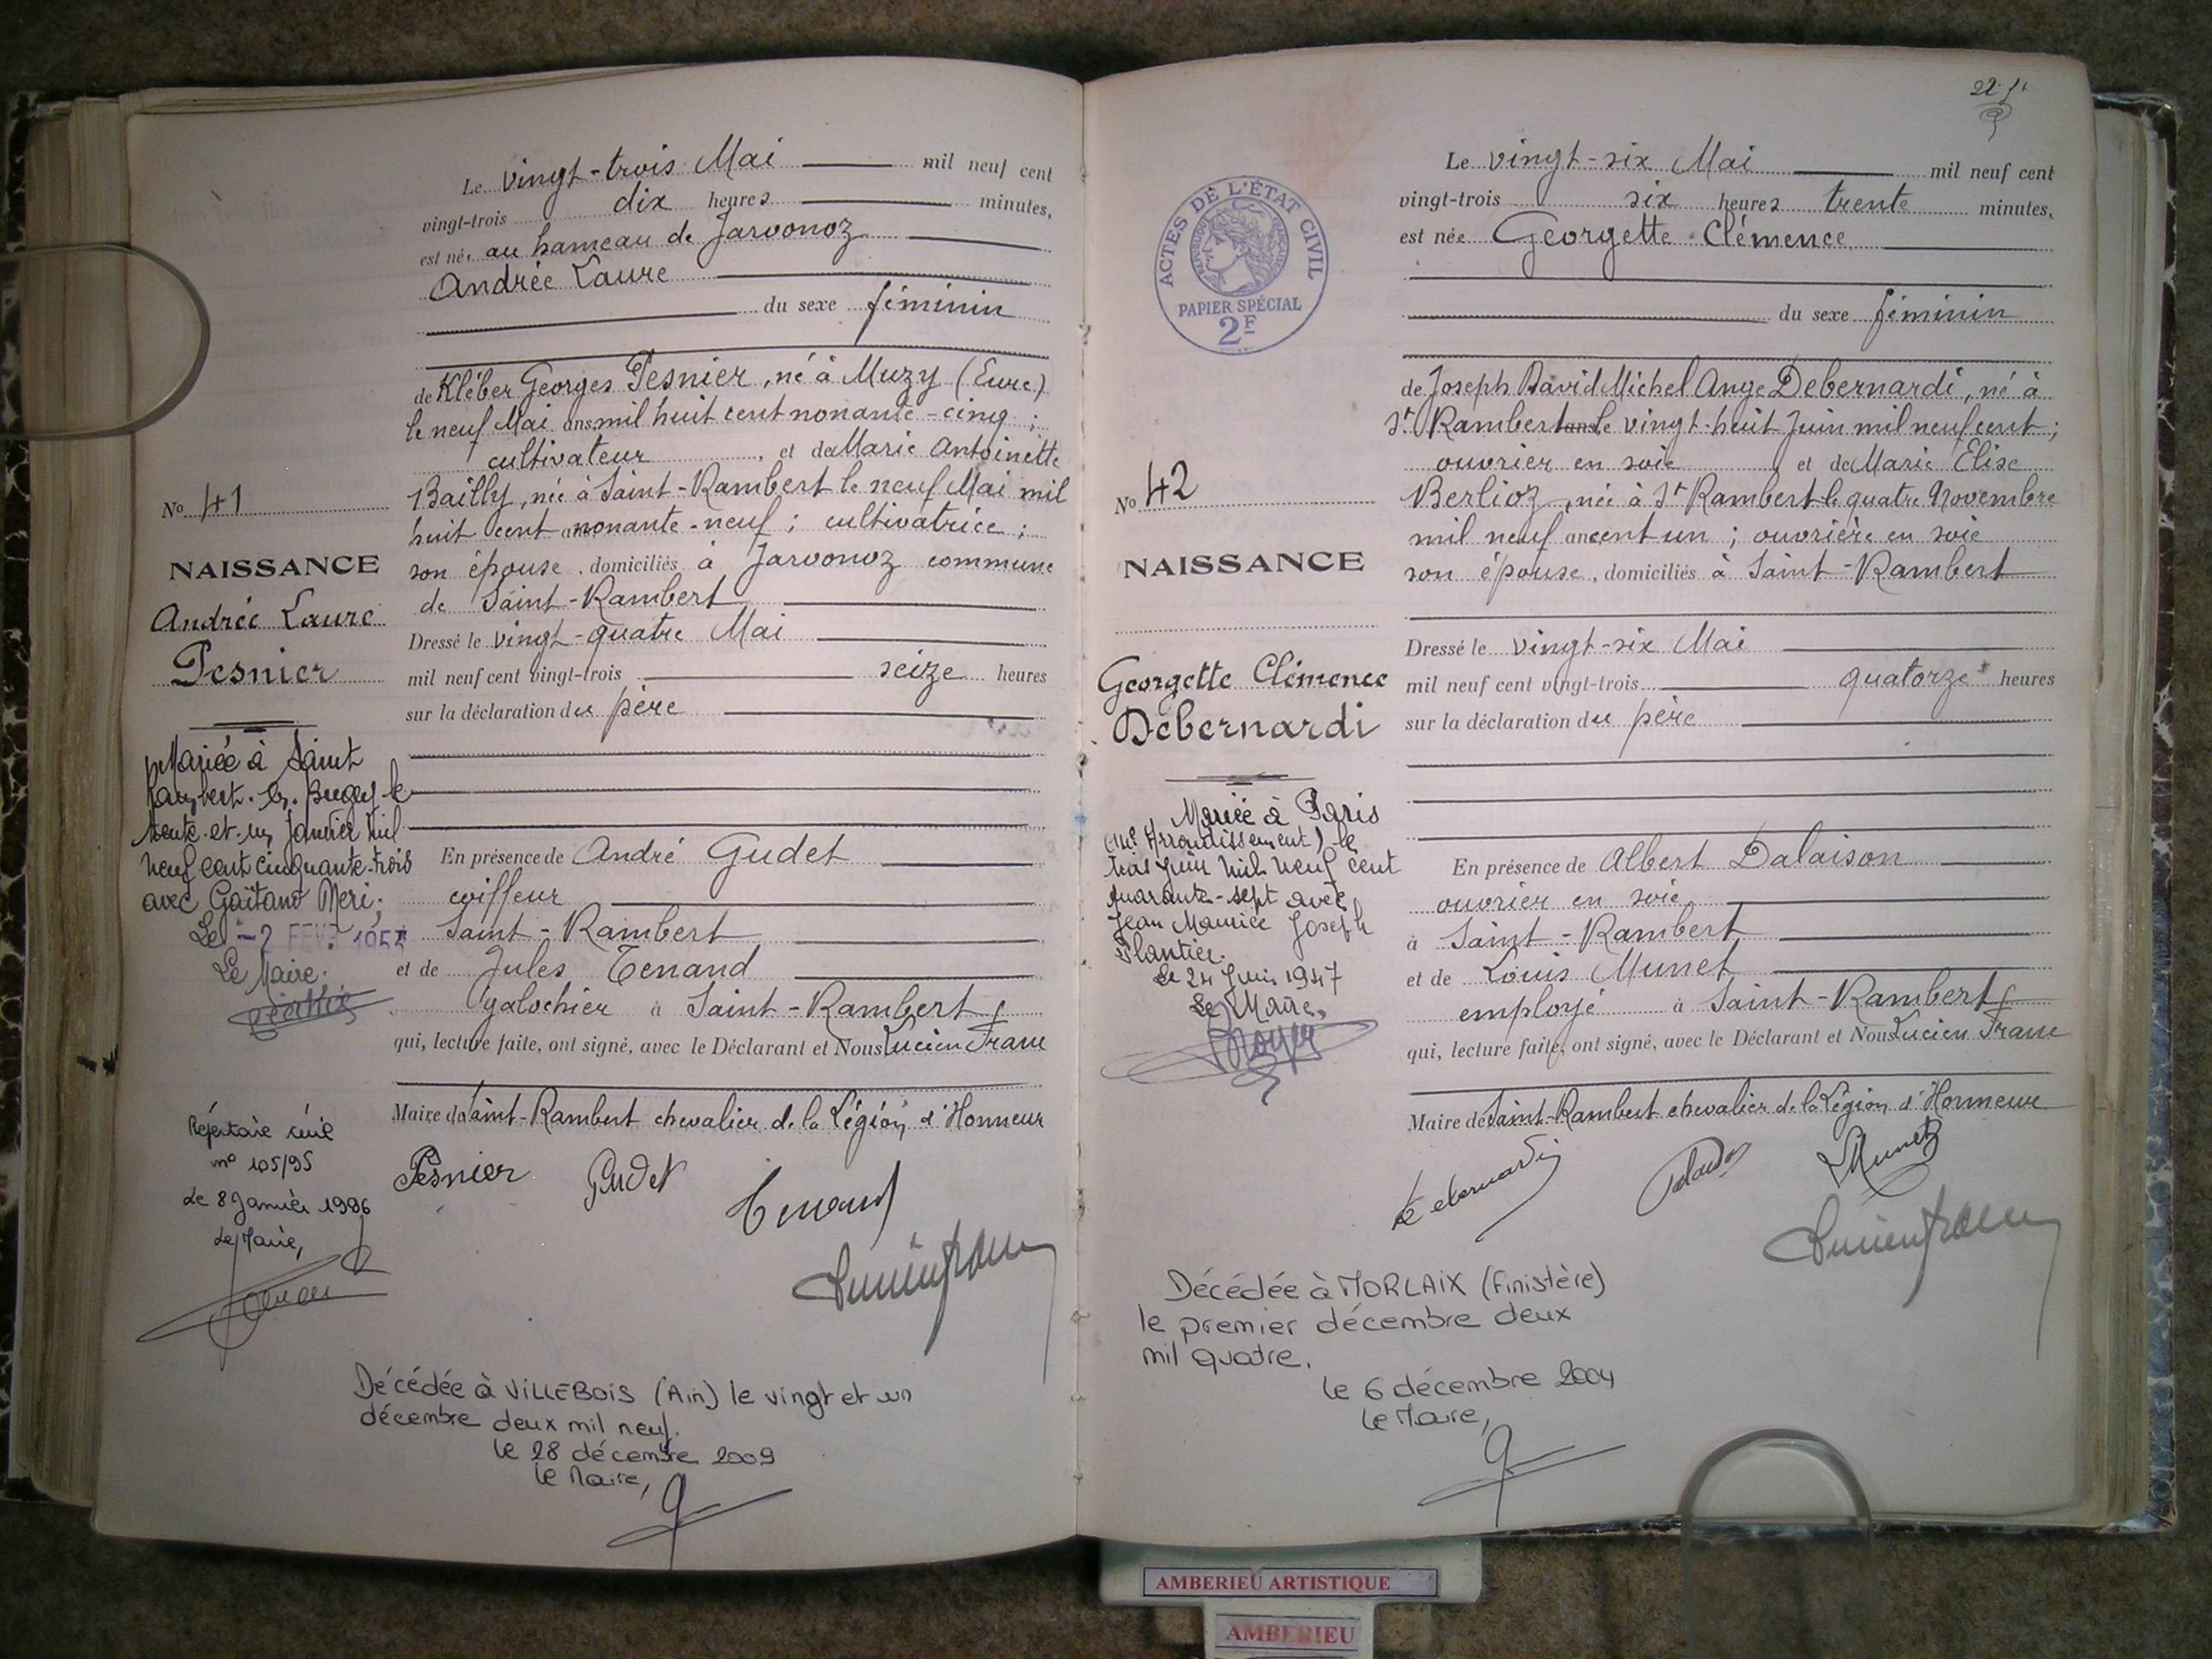 Le vingt-trois Mai mil neuf cent
vingt-trois dix heures minutes,
est née au hameau de Jarvonoz
Andrée Laure
du sexe féminin
de Kléber Georges Pesnier, né à Muzy (Eure)
le neuf Mai ans mil huit cent nonante-cinq ;
cultivateur, et de Marie Antoinette
Bailly, née à Saint-Rambert le neuf Mai mil
huit cent nonante-neuf ; cultivatrice ;
son épouse, domiciliés à Jarvonoz commune
de Saint-Rambert
Dressé le vingt-quatre Mai
mil neuf cent vingt-trois seize heures
sur la déclaration du père
En présence de André Gudet
coiffeur
Saint-Rambert
et de Jules Tenand
galochier à Saint-Rambert
qui, lecture faite, ont signé, avec le Déclarant et Nous Lucien Franc
Maire de Saint-Rambert chevalier de la Légion d'Honneur
Pesnier Gudet Tenand
No 41
NAISSANCE
Andrée Laure
Pesnier
Mariée à Saint
Rambert-en-Bugey le
trente-et-un Janvier mil
neuf cent cinquante-trois
avec Gaïtano Neri ;
Le -2 FEVR 195
Le Maire,
Répertoire civil
no 105/95
Le 8 Janvier 1996
Le Maire,
Décédée à VILLEBOIS (Ain) le vingt et un
décembre deux mil neuf.
le 28 décembre 2009
le Maire,
22
ACTES DE L'ÉTAT CIVIL
RÉPUBLIQUE FRANÇAISE
PAPIER SPÉCIAL
2F
Le vingt-six Mai mil neuf cent
vingt-trois six heures trente minutes,
est née Georgette Clémence
du sexe féminin
de Joseph David Michel Ange Debernardi, né à
St Rambert ans le vingt-huit Juin mil neuf cent ;
ouvrier en soie, et de Marie Elise
Berlioz, née à St Rambert le quatre Novembre
mil neuf ans cent un ; ouvrière en soie
son épouse, domiciliés à Saint-Rambert
Dressé le vingt-six Mai
mil neuf cent vingt-trois quatorze heures
sur la déclaration du père
En présence de Albert Dalaison
ouvrier en soie
à Saint-Rambert
et de Louis Munet
employé à Saint-Rambert
qui, lecture faite, ont signé, avec le Déclarant et Nous Lucien Franc
Maire de Saint-Rambert chevalier de la Légion d'Honneur
Debernardi Munet
No 42
NAISSANCE
Georgette Clémence
Debernardi
Mariée à Paris
Arrondissement) le
trois Juin mil neuf cent
quarante-sept avec
Jean Maurice Joseph
Plantier.
Le 24 Juin 1947
Le Maire,
Décédée à MORLAIX (Finistère)
le premier décembre deux
mil quatre.
le 6 décembre 2004
le Maire,
AMBERIEU ARTISTIQUE
AMBERIEU